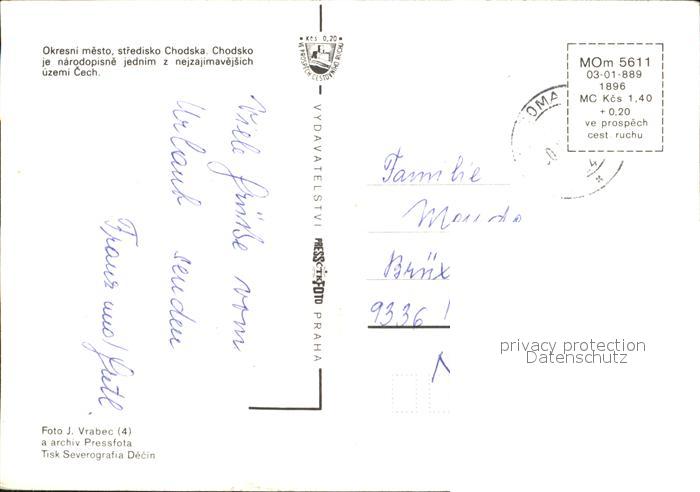 Okresní město, středisko Chodska. Chodsko
je národopisně jedním z nejzajímavějších
území Čech.
Kčs 0,20
VE PROSPĚCH CESTOVNÍHO RUCHU
MOm 5611
03-01-889
1896
MC Kčs 1,40
+ 0,20
ve prospěch
cest. ruchu
DOMA
4
Viele Grüße vom
Urlaub senden
Franz und
VYDAVATELSTVÍ PRESSFOTO PRAHA
Familie
Brüx
9336
privacy protection
Datenschutz
Foto J. Vrabec (4)
a archiv Pressfota
Tisk Severografia Děčín